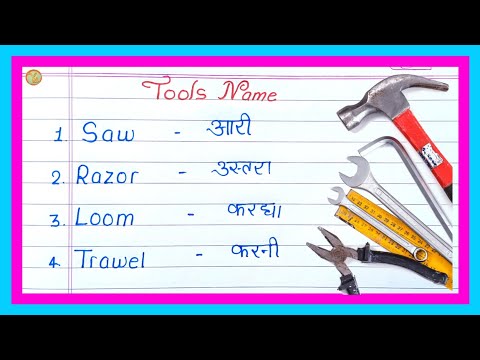 Tools Name
1. Saw - आरी
2. Razor - उस्तरा
3. Loom - करघा
4. Trawel - करनी